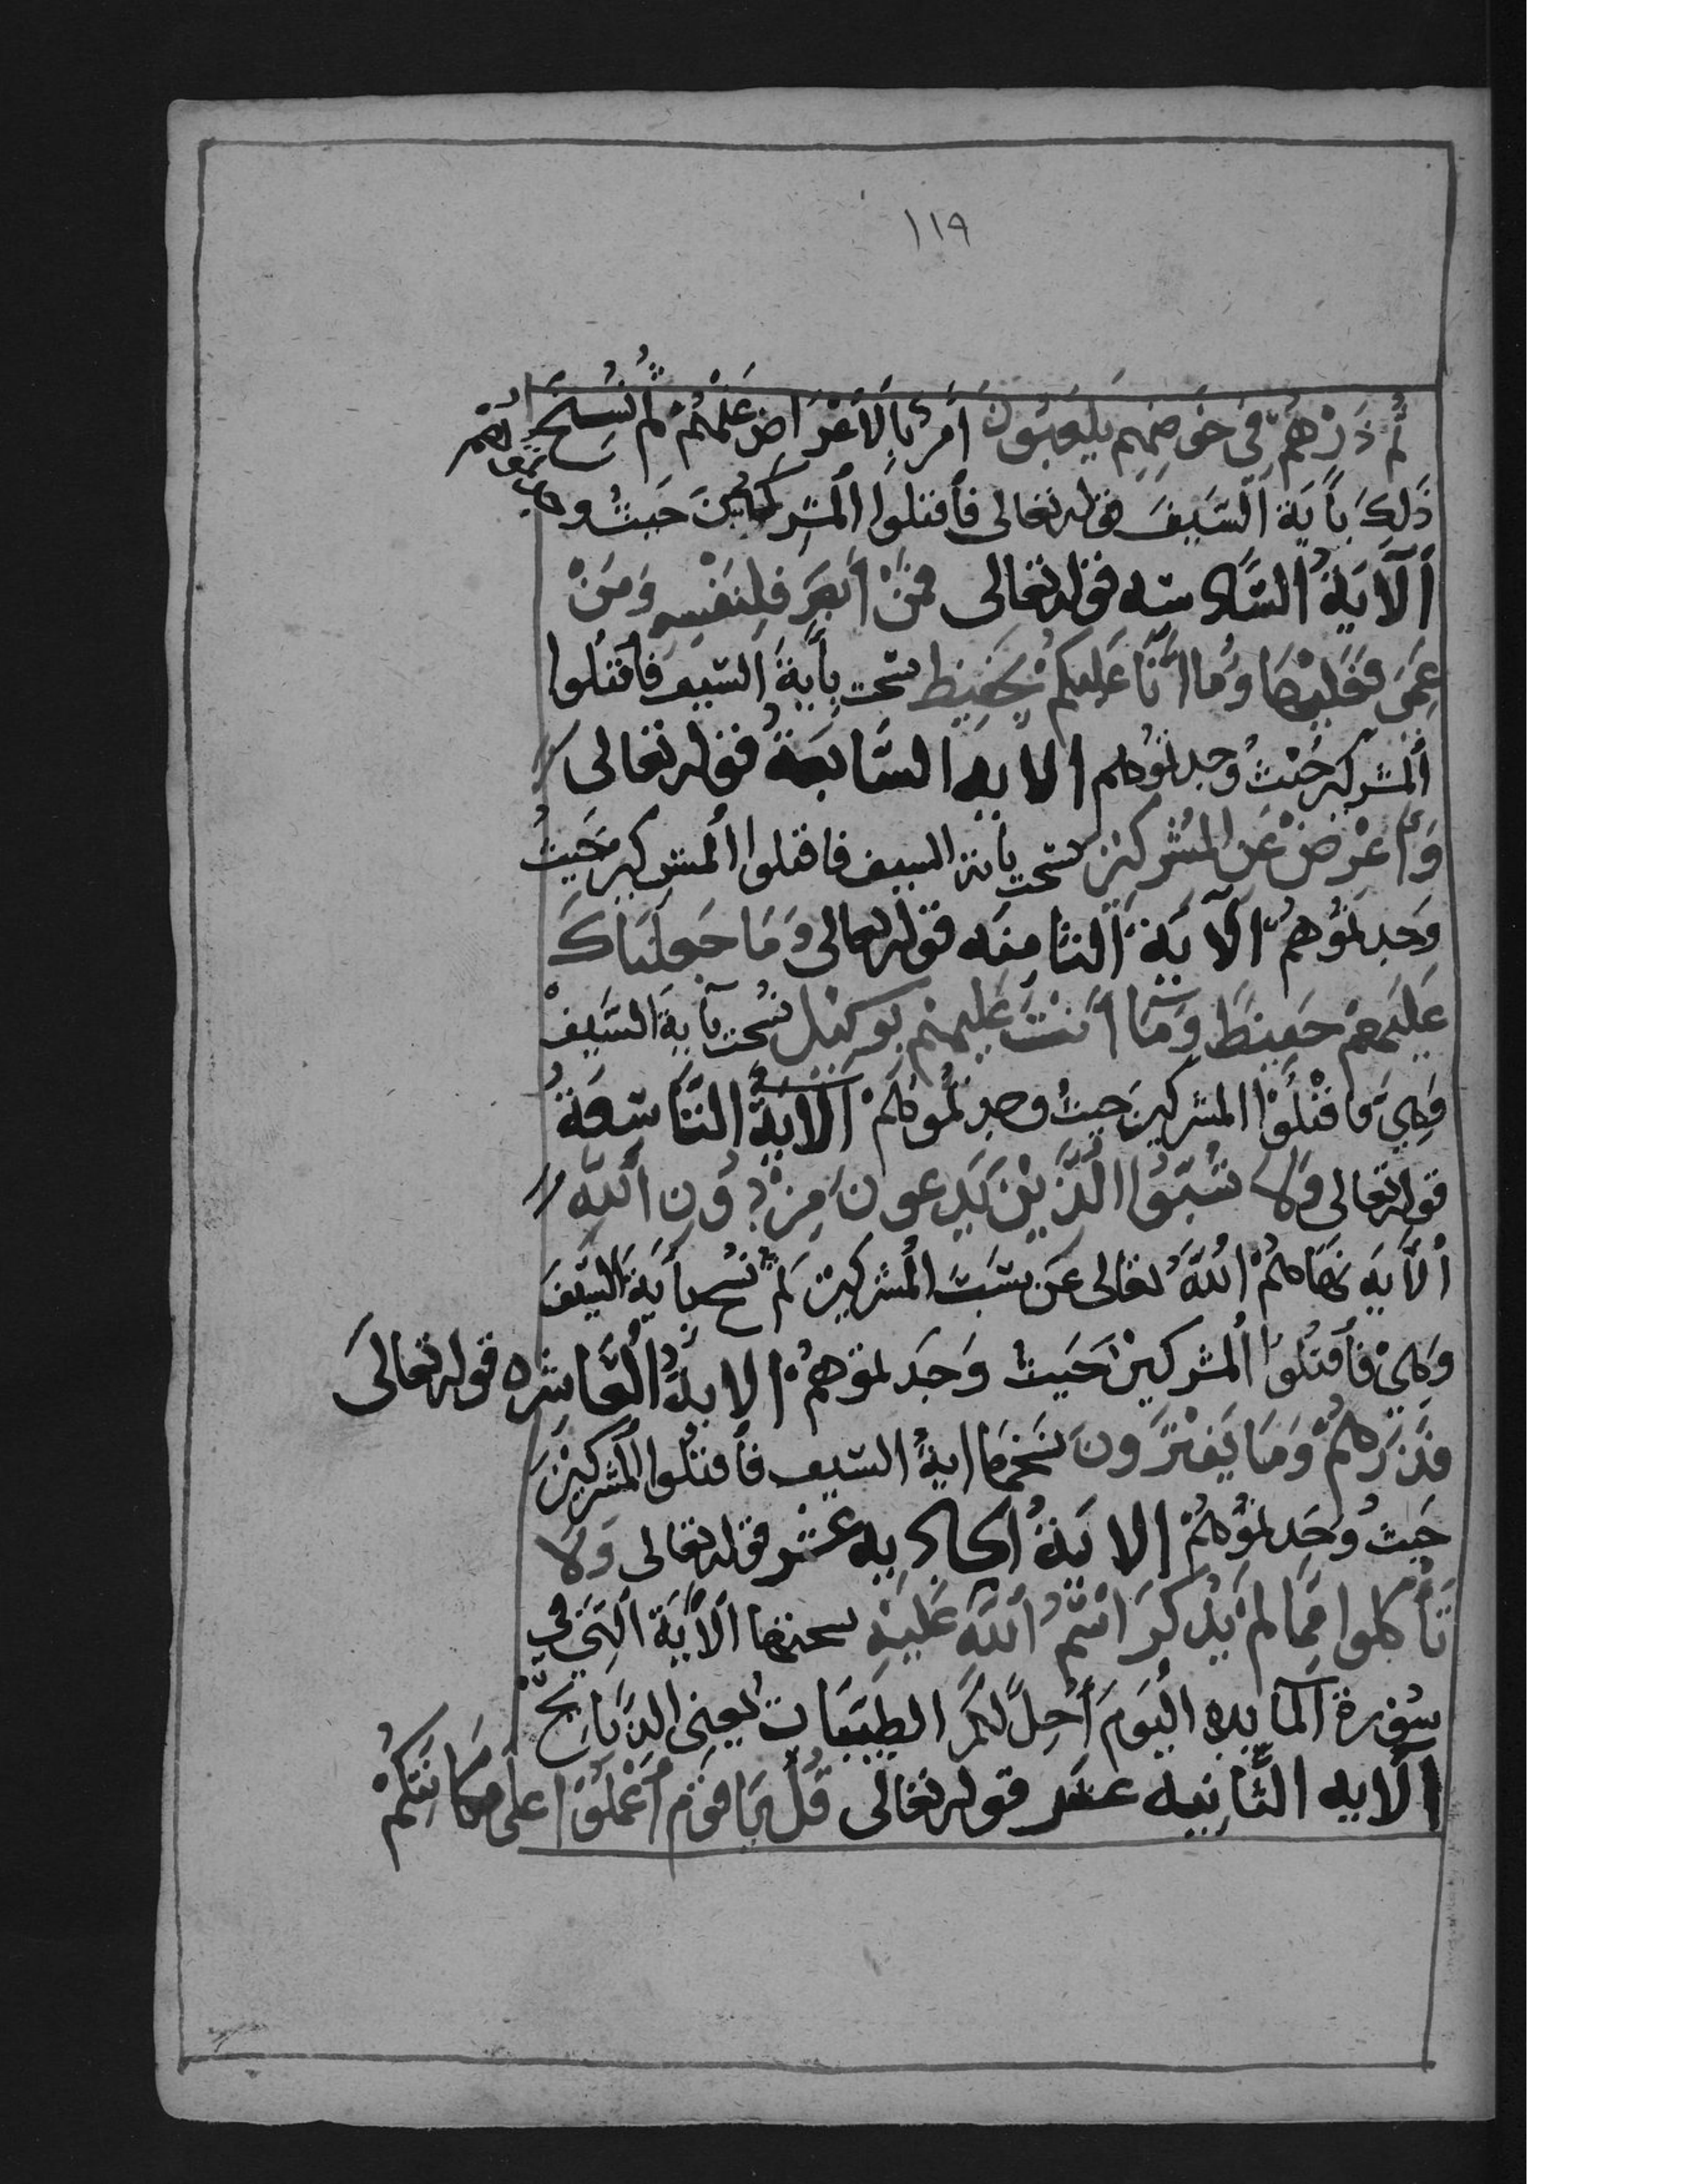 ١١٩
ثُمَّ ذَرْهُمْ فِي خَوضِهِم يَلْعَبُونَ أَمَرَ بِالْأَعْرَاضِ عَنْهُمْ ثُمَّ نُسِخَ
ذَلِكَ بِأَيَة اَلسَّيفَ قوله تعالى فأقتلوا المشركينَ حَيثُ وجدتموهم
اَلْآيَةُ السَّادسه قوله تعالى فمَنْ أَبْصَرَ فَلِنَفْسِهِ وَمَنْ
عَمِيَ فَعَلَيْهَا وَمَا اَنَا عَلَيكُمْ بِحَفِيظ نسخت بِأَيَةَ السَّيف فاقتُلُوا
اُلمشركين حَيْثُ وجدتمُوهم الايه السَّابِعَةُ قوله تعالى
وَأَعْرِضْ عَنِ المُشْرِكِين نسخت باية السيف فاقتلوا المشركين حَيثُ
وَجدتمُوهُمْ اَلآيَةُ الثامِنَه قوله تعالى وَمَا جَعلنَاكَ
عَلَيْهِمْ حَفِيظًا وَمَا أَنْتَ عَلِيهِمْ بِوَكِيل نُسخت بآية السَّيفْ
وَهِيَ فَاقْتُلُوْا المشركينَ حيثُ وجدتُّمُوهُمْ اَلْآيَةُ التَّاسِعَةُ
قوله تعالى وَلَا تَسُبُّوُا الَّذِيْنَ يَدعون مِنْ دُونِ اَللَّهِ
اْلأَيَه نَهَاهُمُ اُللَّهُ تعالى عَنْ سَبِّ المُشركين ثم نسخ بأيَة السَّيفَ
وَهِيَ فَأقتلُوا اُلمشركينْ حَيثُ وَجَدتموهُمْ الايةُ الْعَاشِره قوله تعالىَ
فَذَرْهُمْ وَمَا يَفْتَرُونَ نَسَخَهَا ايةُ السَّيف فَأقتُلُوا المُشركِيْنَ
حَيثُ وُجَدتمُوُهُمْ الايَةُ اُلحاديه عشر قوله تعالى وَلَا
تَأْكُلوا مِمَّا لَمْ يُذْكَرِ اسْمُ اُللَّهِ عَلَيْهِ نسختها اَلْأَيَة اَلَّتِي في
سُورة اَلْمايده اليُومَ أُحِلَّ لَكُمُ الطيِّبَات يُعني الذَّبَايح
اَلْآيه الثَّانِيه عشر قوله تعالى قُلْ يَا قَوْمِ اُعْمَلُوْا على مَكَانَتِكُمْ